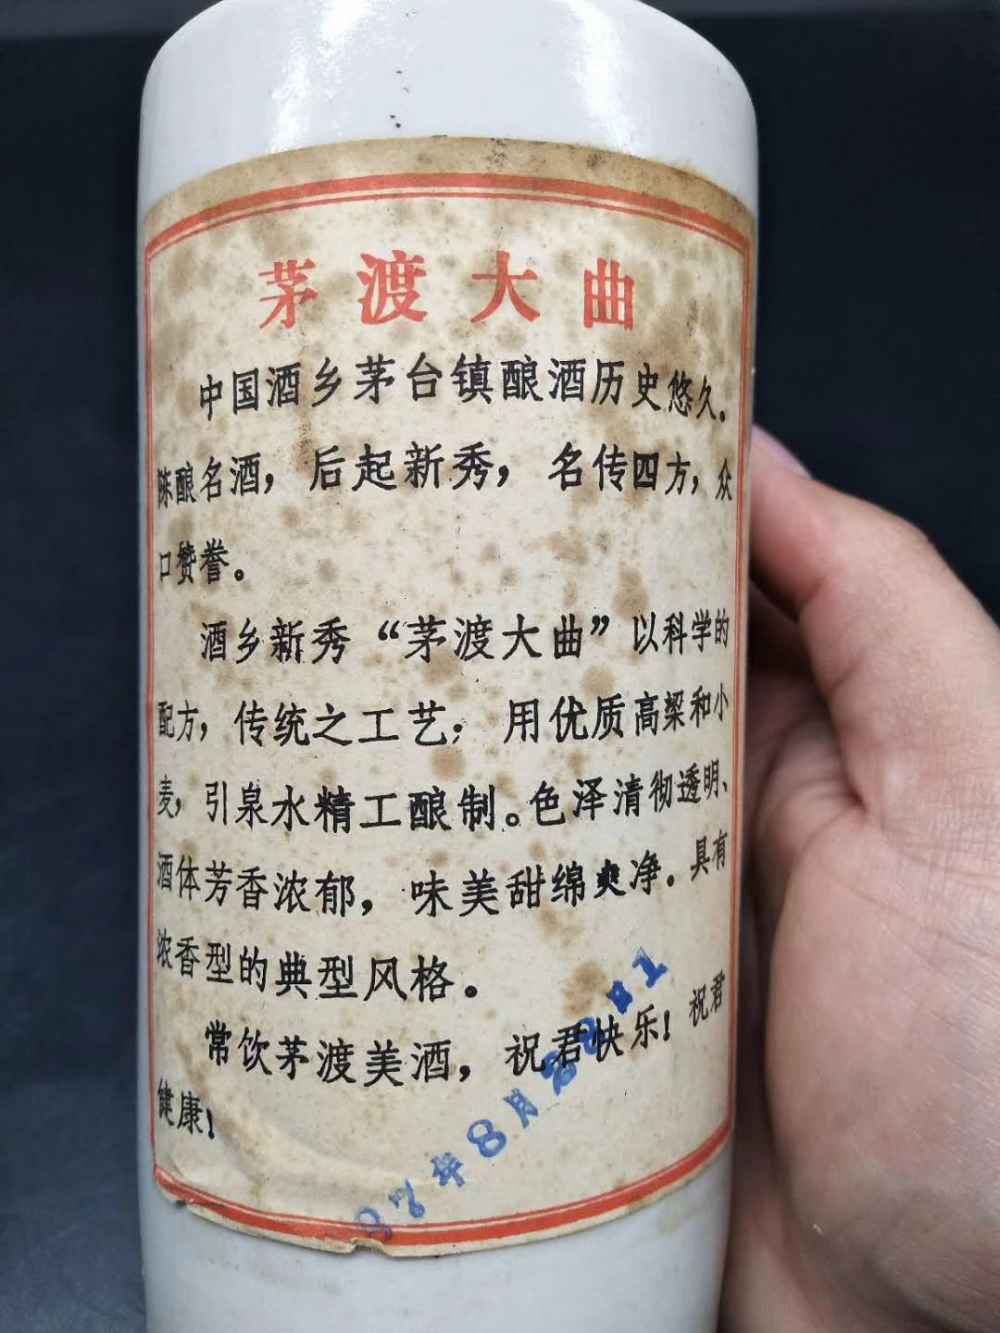 茅渡大曲
中国酒乡茅台镇酿酒历史悠久。
陈酿名酒，后起新秀，名传四方，众
口赞誉。
酒乡新秀“茅渡大曲”以科学的
配方，传统之工艺；用优质高粱和小
麦，引泉水精工酿制。色泽清彻透明、
酒体芳香浓郁，味美甜绵爽净。具有
浓香型的典型风格。
常饮茅渡美酒，祝君快乐！祝君
健康！
87年8月
日1